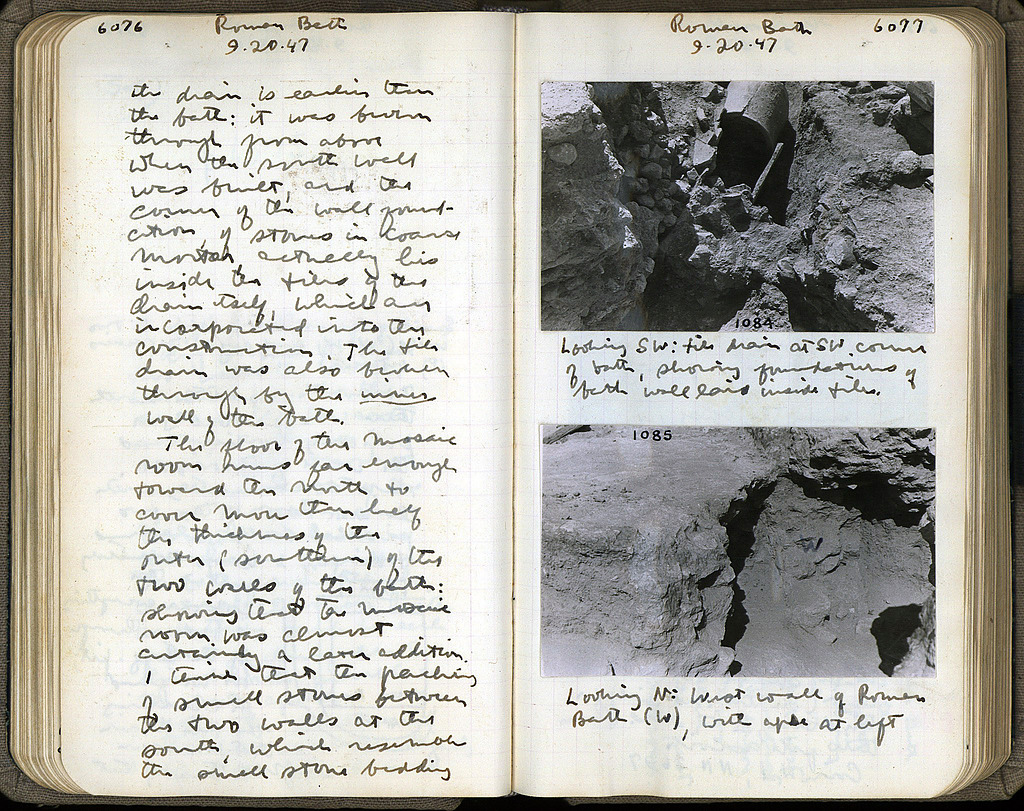 6076
Roman Bath
9.20.47
the drain is earlier than
the bath: it was broken
through from above
when the south wall
was built, and the
corner of the wall found-
ation, of stones in coarse
mortar, actually lies
inside the tiles of the
drain itself, which are
incorporated into the
construction. The tile
drain was also broken
through by the inner
wall of the bath.
The floor of the mosaic
room runs far enough
toward the north to
cover more than half
the thickness of the
outer (southern) of the
two walls of the bath:
showing that the mosaic
room was almost
certainly a later addition.
I think that the packing
of small stones between
the two walls at the
south, which resemble
the small stone bedding
Roman Bath
6077
9.20.47
1084
Looking SW: tile drain at SW corner
of bath, showing foundations of
bath wall laid inside tiles.
1085
W
Looking N: West wall of Roman
Bath (W), with apse at left